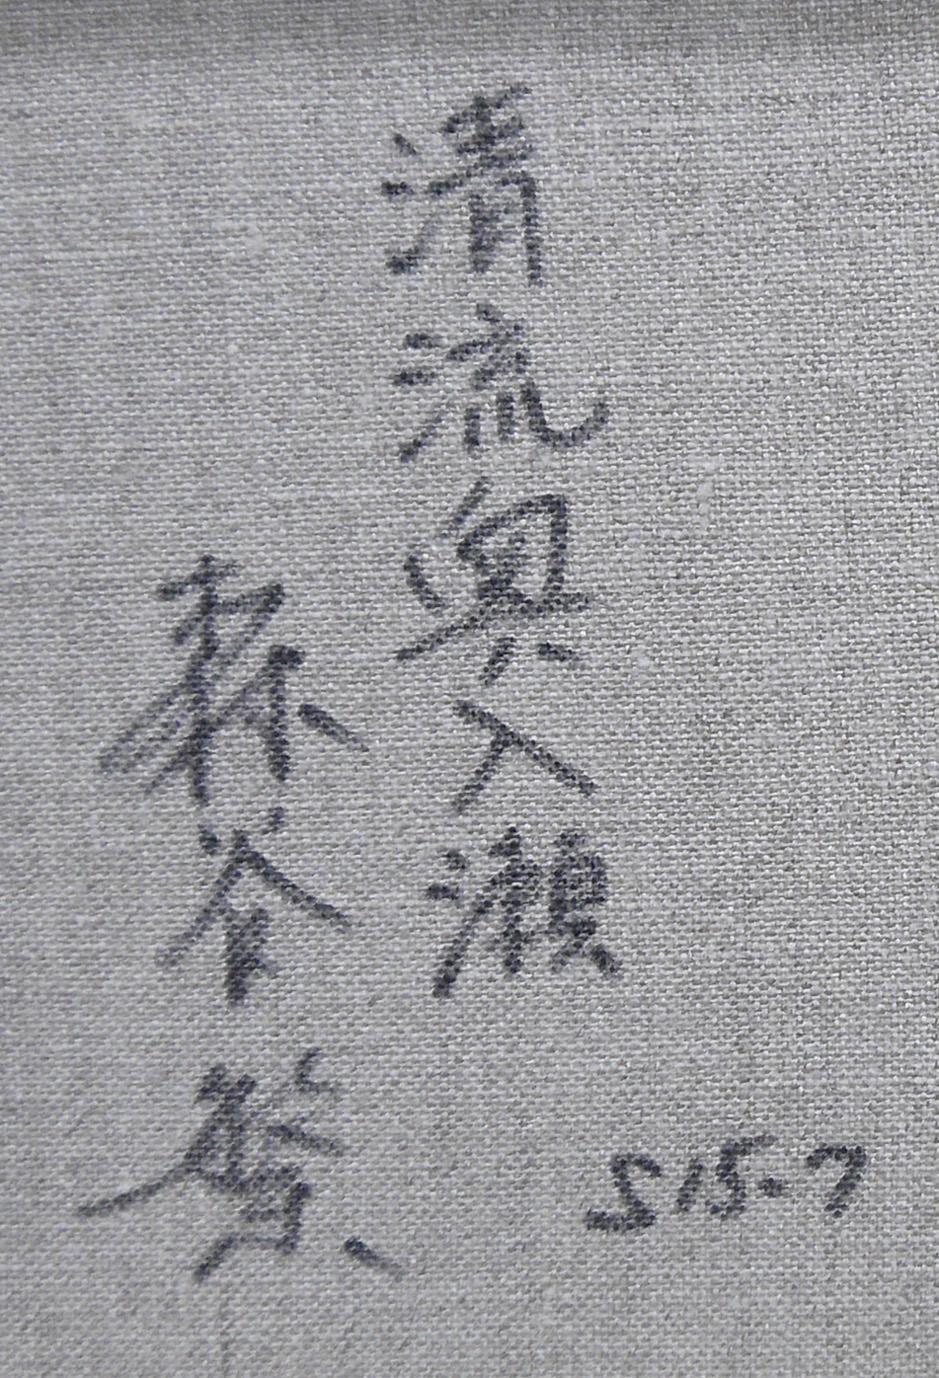 清流奥入瀬
森谷
S15-7